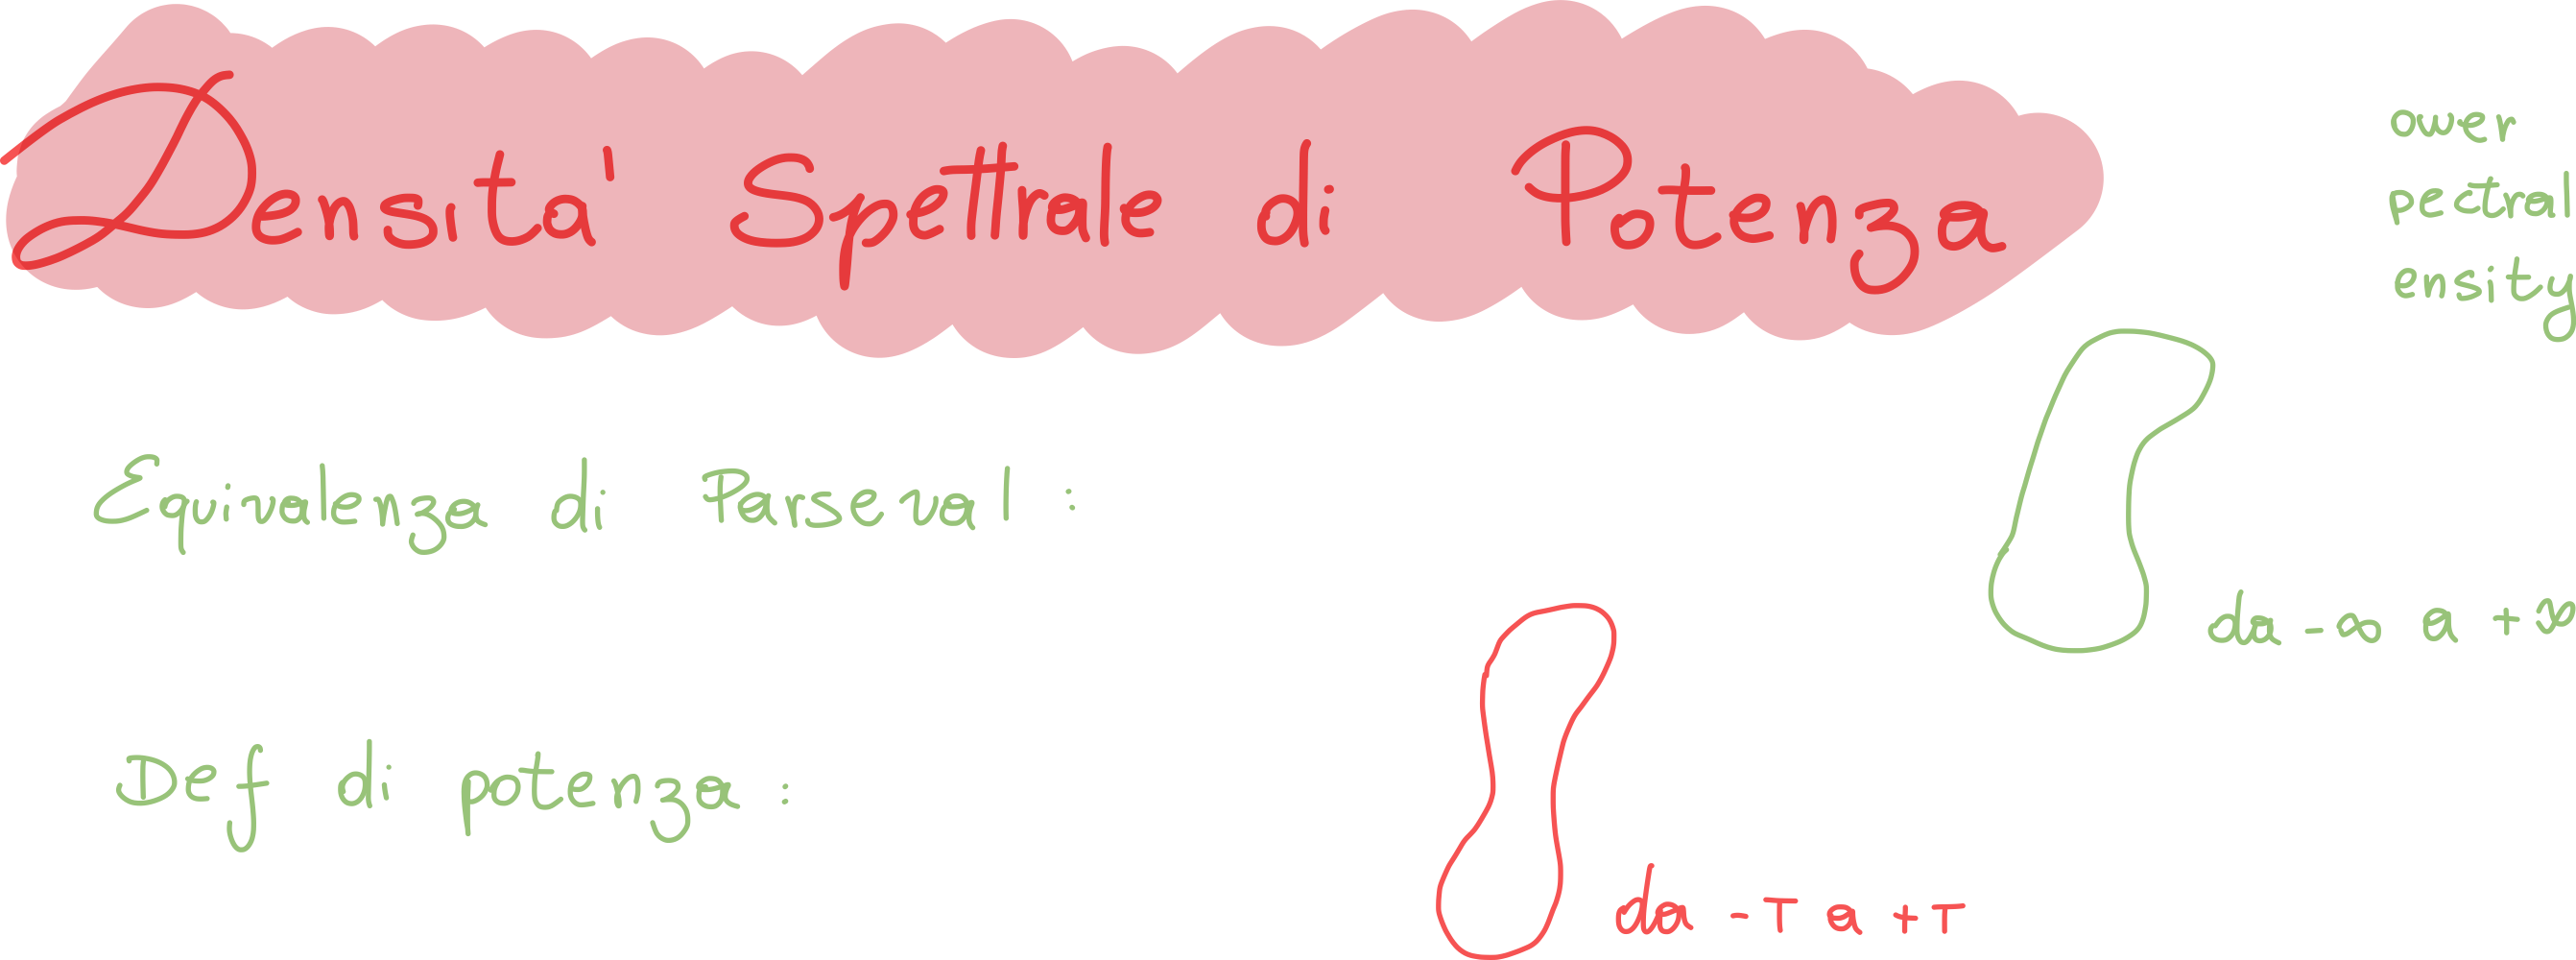 Densita' Spettrale di Potenza
ower
pectral
ensity
Equivalenza di Parseval :
da -∞ a +∞
Def di potenza :
da -T a +T